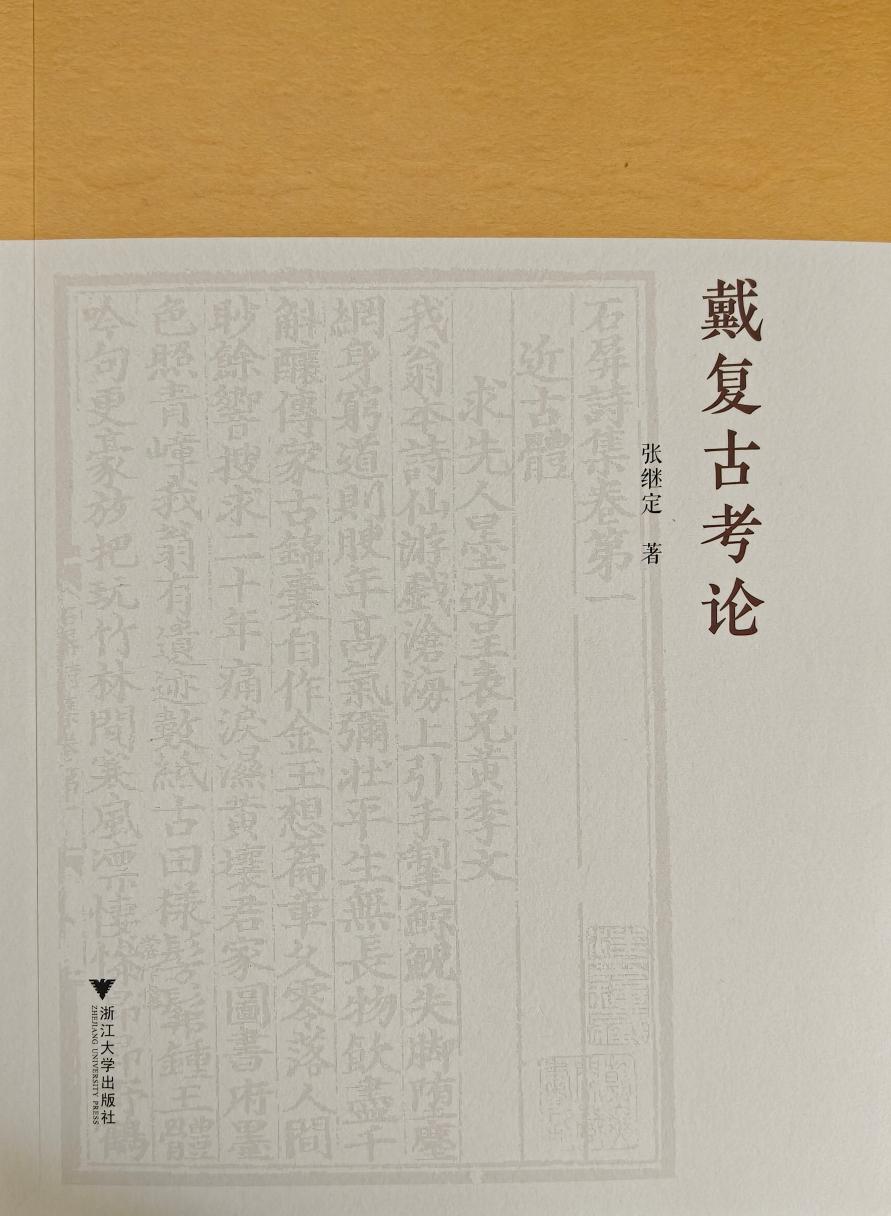 戴复古考论
张继定 著
石屏詩集卷第一
近古體
求先人墨迹呈表兄黄季文
我翁本詩仙游戲滄海上引手掣鯨鯢失脚墮塵
網身窮道則腴年高氣彌壯平生無長物飲盡千
斛釀傳家古錦囊自作金玉想篇章久零落人間
眇餘響搜求二十年痛淚濕黄壤君家圖書府墨
色照青嶂我翁有遺迹數紙古田樣髣髴鍾王體
吟句更豪放把玩竹林間寒風凛悽愴
浙江大学出版社
ZHEJIANG UNIVERSITY PRESS